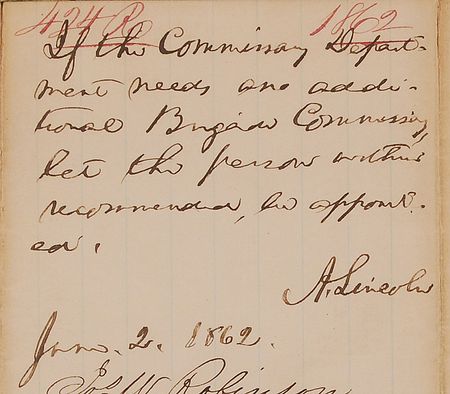 424 R 1862
If the Commissary Depart-
ment needs an addi-
tional Brigade Commissary,
let the person within
recommended, be appoint-
ed.
A. Lincoln
June. 2. 1862.
Jos W. Robinson